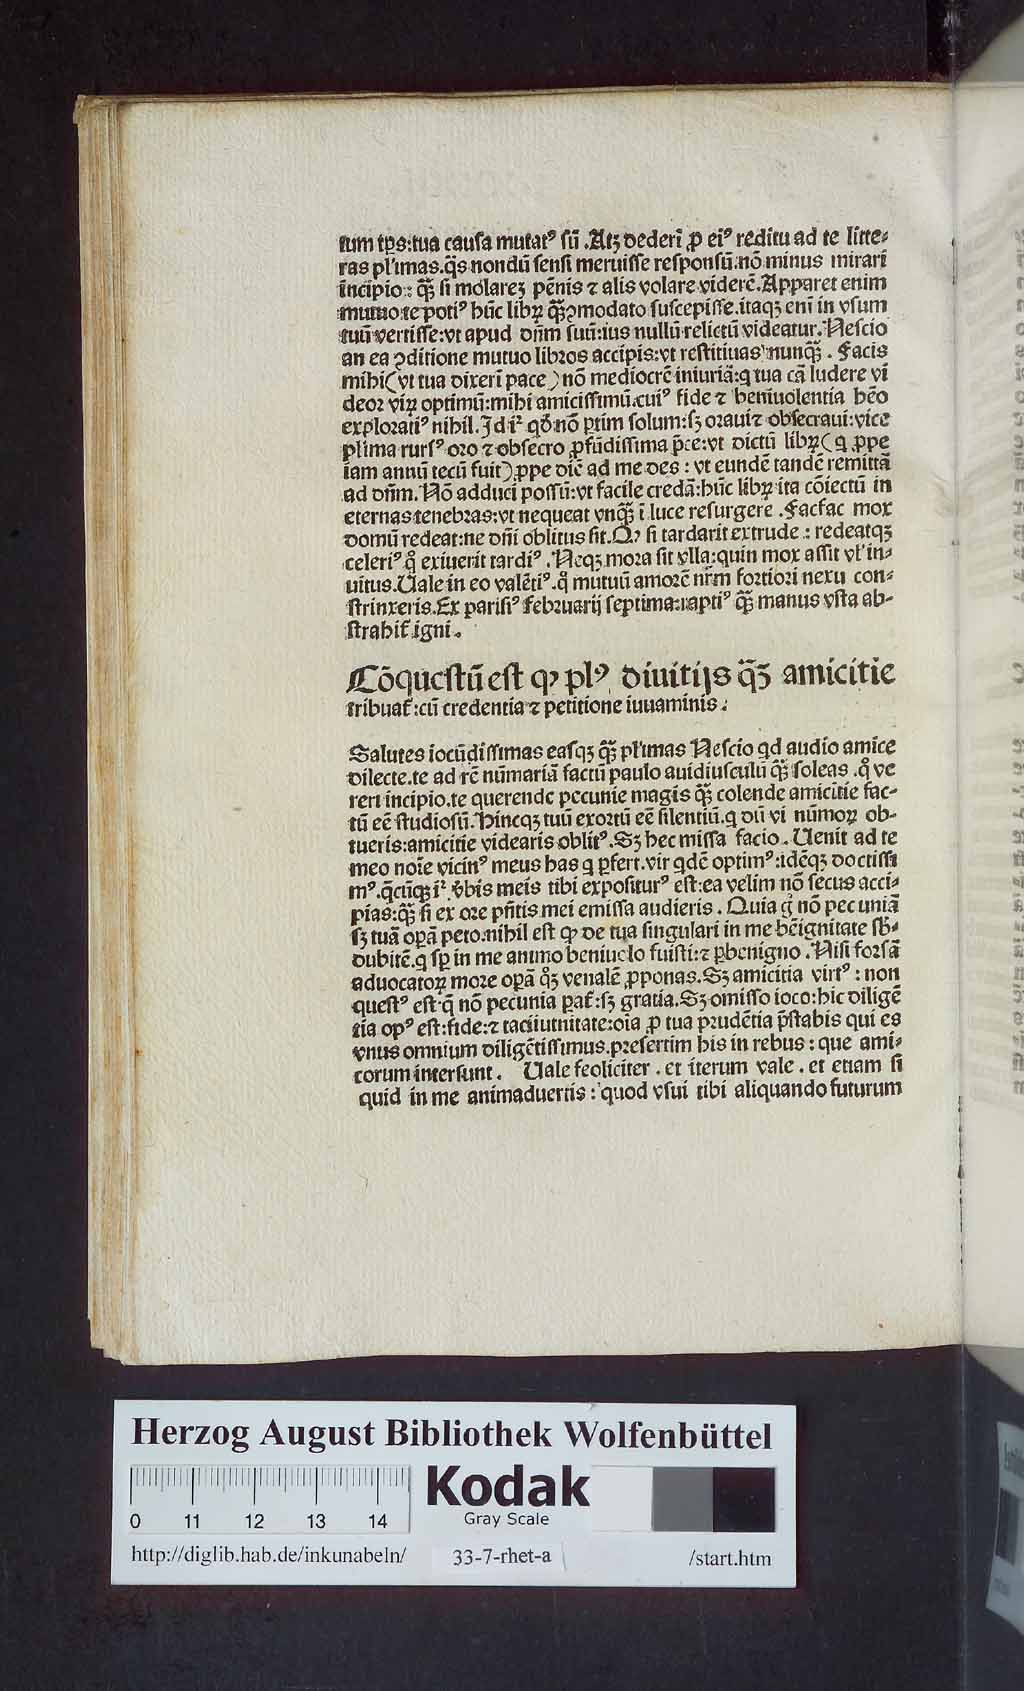 tum tp̄s:tua causa mutatꝰ sū .Atꝫ dederī ꝓ eiꝰ reditu ad te litte⸗
ras pl'imas.q̄s nondū sensi meruisse responsū:nō minus mirari
incipio: q̄ꝫ si molareꝫ pēnis ⁊ alis volare viderē.Apparet enim
mutuo te potiꝰ hūc librꝫ q̄ꝫ ꝯmodato suscepisse.itaqꝫ enī in vsum
tuū vertisse:vt apud dn̄m suū:ius nullū relictū videatur. Nescio
an ea ꝯditione mutuo libros accipis:vt restituas nunq̄ꝫ . Facis
mihi(vt tua dixeri pace)nō mediocrē iniuriā:q tua cā ludere vi
deor virꝫ optimū:mihi amicissimū.cuiꝰ fide ⁊ beniuolentia hēo
exploratiꝰ nihil.Id ir̄ qd̄ nō ꝑtim solum:sꝫ oraui ⁊ obsecraui:vice
pl'ima rursꝰ oro ⁊ obsecro ꝓfūdissima p̄ce:vt dictū librꝫ(q ꝓpe
iam annū tecū fuit)ꝓpe diē ad me des : vt eundē tandē remittā
ad dn̄m. Nō adduci possū:vt facile credā:hūc librꝫ ita cōiectū in
eternas tenebras:vt nequeat vnq̄ꝫ ī luce resurgere .Facfac mox
domū redeat:ne dn̄i oblitus sit.Qꝙ si tardarit extrude : redeatqꝫ
celeriꝰ q̊ exiuerit tardiꝰ .Neqꝫ mora sit vlla:quin mox assit vl' in⸗
uitus.Uale in eo valētiꝰ.q̊ mutuū amorē nr̄m fortiori nexu con⸗
strinxeris.Ex parisiꝰ februarij septima:raptiꝰ q̄ꝫ manus vsta ab⸗
strahit̄ igni .
Cōquestū est ꝙ plꝰ diuitijs q̄ꝫ amicitie
tribuat̄:cū credentia ⁊ petitione iuuaminis .
Salutes iocūdissimas easqꝫ q̄ꝫ pl'imas Nescio qd audio amice
dilecte.te ad rē nūmariā factū paulo auidiusculū q̄ꝫ soleas .q̊ ve
reri incipio.te querende pecunie magis q̄ꝫ colende amicitie fac⸗
tū eē studiosū.Hincqꝫ tuū exortū eē silentiū.q dū vi nūmoꝝ ob⸗
tueris:amicitie videaris oblitꝰ.Sꝫ hec missa facio . Uenit ad te
meo noīe vicinꝰ meus has q ꝑfert.vir qdē optimꝰ:idēqꝫ doctissi
mꝰ.q̄cūqꝫ ir̄ v̄bis meis tibi expositurꝰ est:ea velim nō secus acci⸗
pias:q̄ꝫ si ex ore pn̄tis mei emissa audieris . Quia q̄ nō pecuniā
sꝫ tuā operā peto.nihil est ꝙ de tua singulari in me bēignitate sb̄⸗
dubitē.q sꝑ in me animo beniuolo fuisti:⁊ ꝑbenigno . Nisi forsā
aduocatoꝝ more operā q̊ꝫ venalē ꝓponas.Sꝫ amicitia virtꝰ : non
questꝰ est q̄ nō pecunia parat̄:sꝫ gratia.Sꝫ omisso ioco:hic diligē
tia opꝰ est:fide:⁊ taciiutnitate:oīa ꝓ tua prudētia p̄stabis qui es
vnus omnium diligētissimus.presertim his in rebus : que ami⸗
corum intersunt . Uale feoliciter . et iterum vale . et etiam si
quid in me animaduertis : quod vsui tibi aliquando futurum
Herzog August Bibliothek Wolfenbüttel
Kodak
Gray Scale
0 11 12 13 14
http://diglib.hab.de/inkunabeln/ 33-7-rhet-a /start.htm